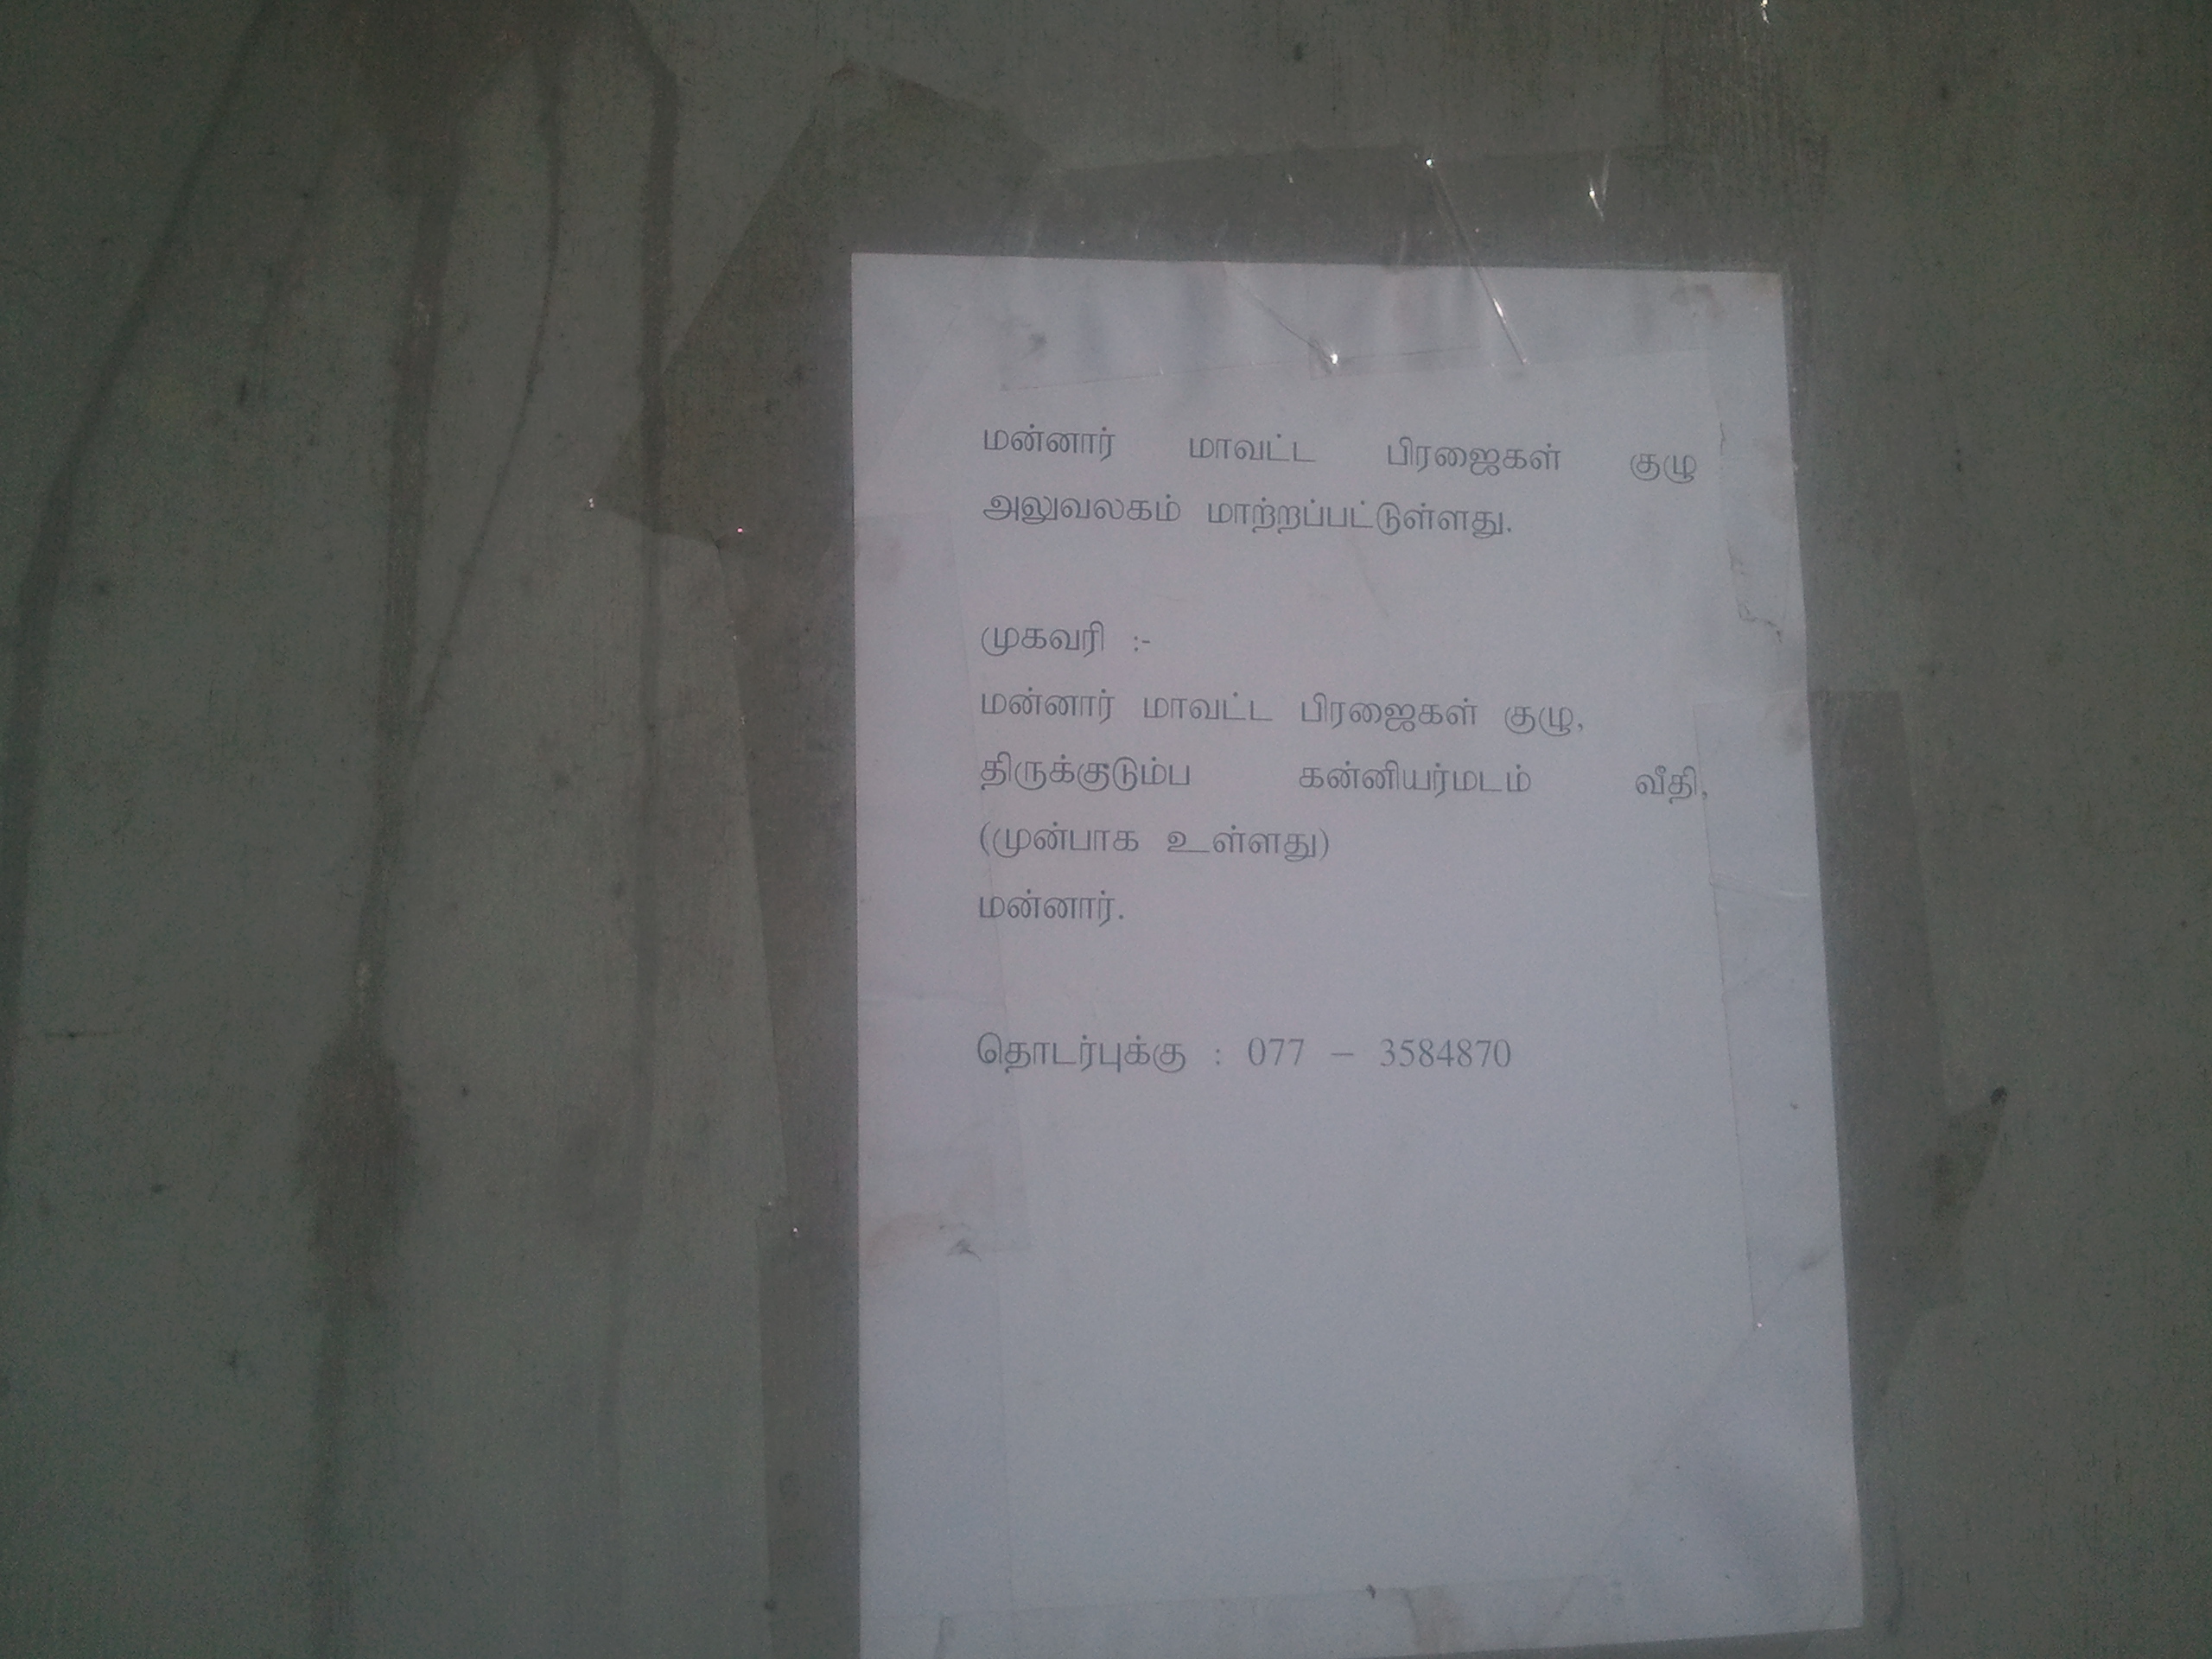 மன்னார் மாவட்ட பிரஜைகள் குழு
அலுவலகம் மாற்றப்பட்டுள்ளது.
முகவரி :-
மன்னார் மாவட்ட பிரஜைகள் குழு,
திருக்குடும்ப கன்னியர்மடம் வீதி,
(முன்பாக உள்ளது)
மன்னார்.
தொடர்புக்கு : 077 – 3584870